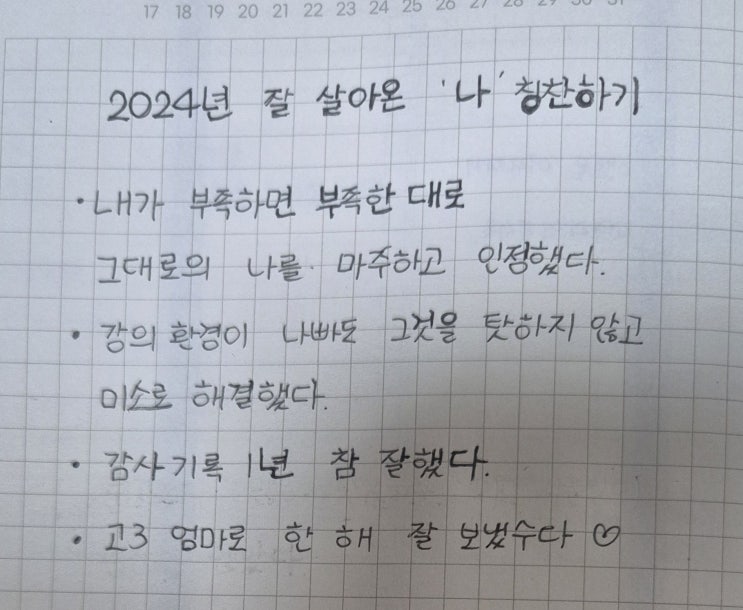 17 18 19 20 21 22 23 24 25 26 27 28 29 30 31
2024년 잘 살아온 '나' 칭찬하기
• 내가 부족하면 부족한 대로
그대로의 나를 마주하고 인정했다.
• 강의 환경이 나빠도 그것을 탓하지 않고
미소로 해결했다.
• 감사기록 1년 참 잘했다.
• 고3 엄마로 한 해 잘 보냈수다 ♡